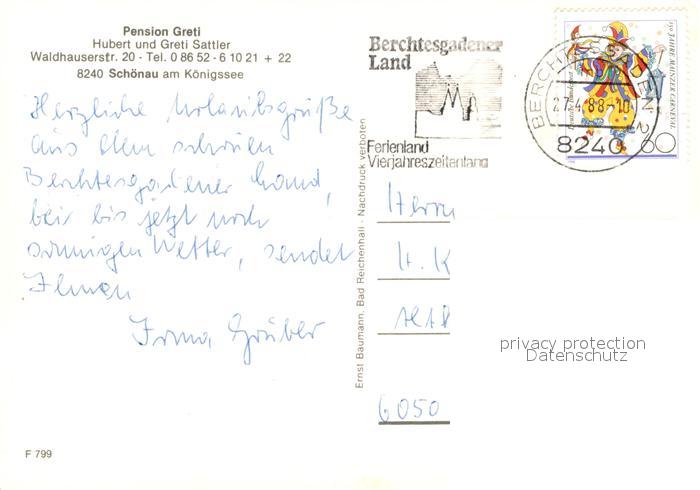 Pension Greti
Hubert und Greti Sattler
Waldhauserstr. 20 - Tel. 0 86 52 - 6 10 21 + 22
8240 Schönau am Königssee
Herzliche Urlaubsgrüße
aus dem schönen
Berchtesgadener Land,
bei bis jetzt noch
sonnigen Wetter, sendet
Ihnen
Irma Gruber
F 799
Ernst Baumann, Bad Reichenhall - Nachdruck verboten
Berchtesgadener
Land
Ferienland
Vierjahreszeitenlang
BERCHTESGADEN 2
27.4.88-10
8240
150 JAHRE MAINZER CARNEVAL
60
Herrn
H. K
6050
privacy protection
Datenschutz